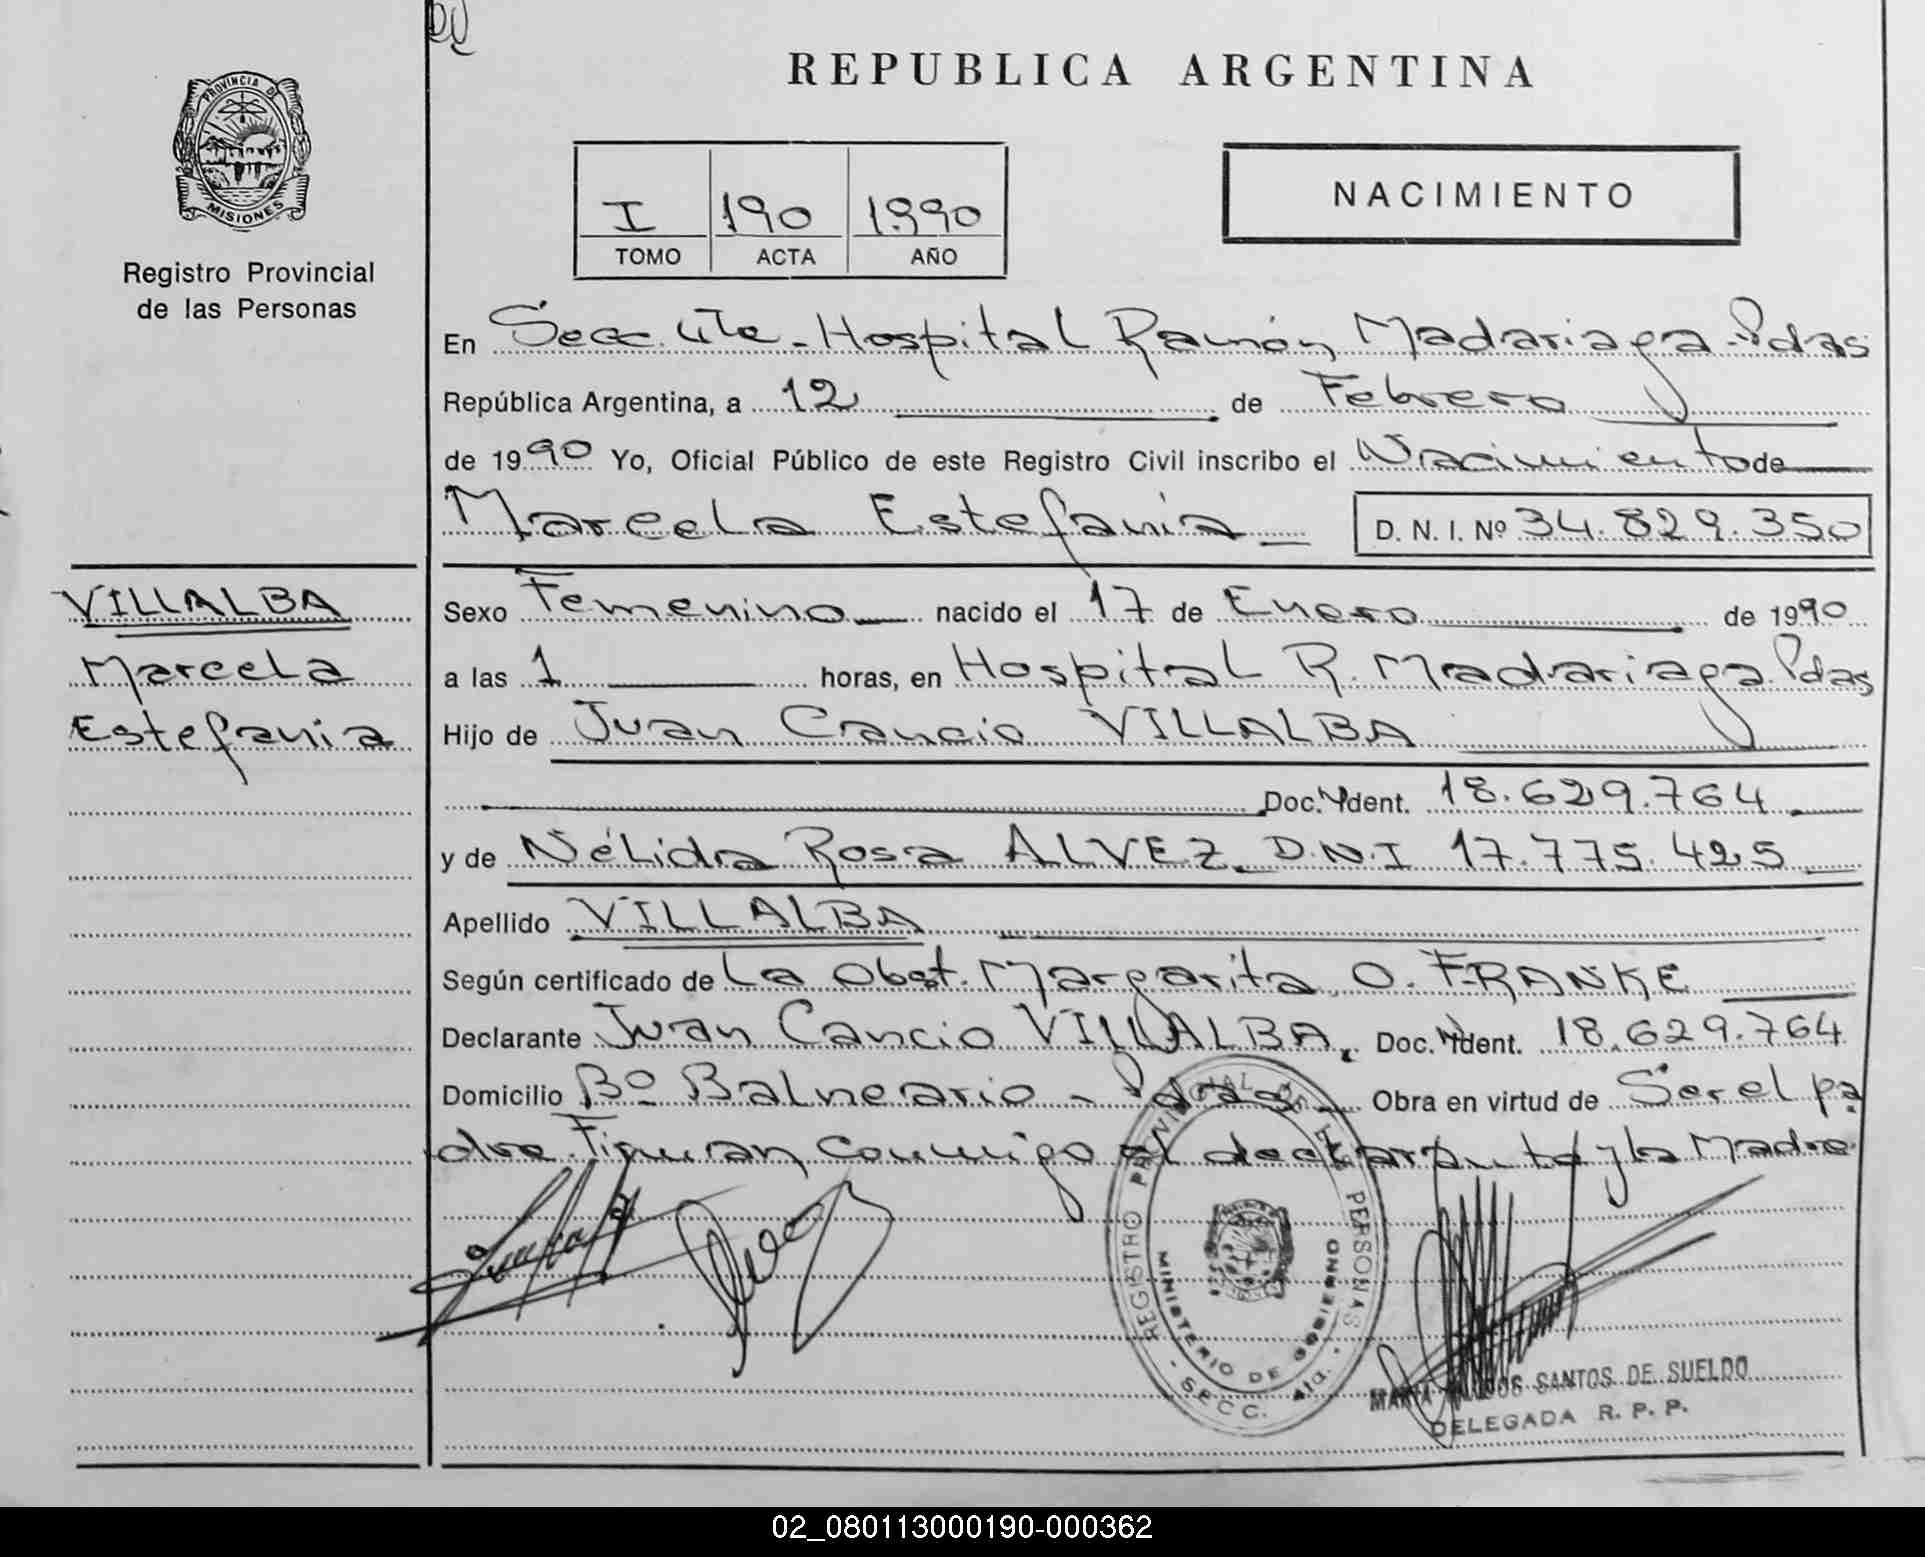 REPUBLICA ARGENTINA
PROVINCIA DE
MISIONES
Registro Provincial
de las Personas
I 190 1990
TOMO ACTA AÑO
NACIMIENTO
En Secc. 4ta - Hospital Ramón Madariaga - Pdas
República Argentina, a 12 de Febrero
de 1990 Yo, Oficial Público de este Registro Civil inscribo el Nacimiento de
Marcela Estefanía D. N. I. Nº 34.829.350
VILLALBA
Marcela
Estefania
Sexo Femenino nacido el 17 de Enero de 1990
a las 1 horas, en Hospital R. Madariaga. Pdas
Hijo de Juan Cancio VILLALBA
Doc. Ident. 18.629.764
y de Nélida Rosa ALVEZ D.N.I 17.775.425
Apellido VILLALBA
Según certificado de La Obst. Margarita O. FRANKE
Declarante Juan Cancio VILLALBA, Doc. Ident. 18.629.764
Domicilio Bº Balneario - Pdas Obra en virtud de Ser el pa
dre. Firman conmigo el declarante y la Madre
REGISTRO PROVINCIAL DE LAS PERSONAS
MINISTERIO DE GOBIERNO
SECC. 4ta.
MARIA SANTOS DE SUELDO
DELEGADA R. P. P.
02_080113000190-000362